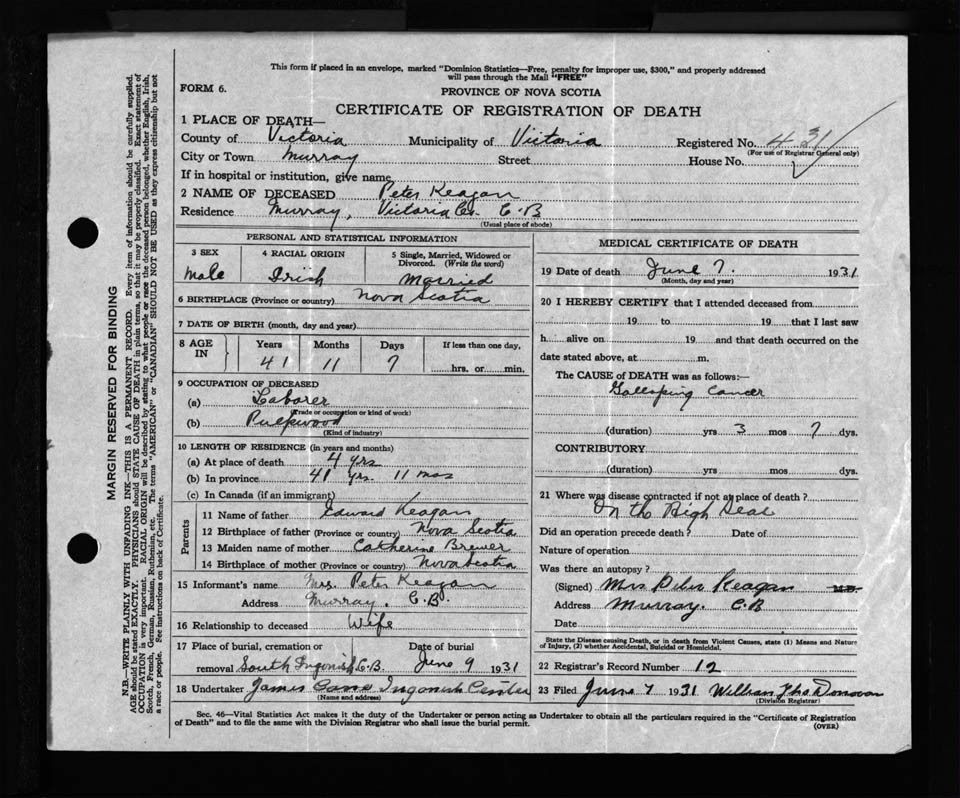 This form if placed in an envelope, marked "Dominion Statistics—Free, penalty for improper use, $300," and properly addressed
will pass through the Mail "FREE"
FORM 6.
PROVINCE OF NOVA SCOTIA
CERTIFICATE OF REGISTRATION OF DEATH
1 PLACE OF DEATH—
County of Victoria Municipality of Victoria Registered No. 431
(For use of Registrar General only)
City or Town Murray Street House No.
If in hospital or institution, give name
2 NAME OF DECEASED Peter Keagan
Residence Murray, Victoria Co. C.B
(Usual place of abode)
PERSONAL AND STATISTICAL INFORMATION
3 SEX 4 RACIAL ORIGIN 5 Single, Married, Widowed or
Divorced. (Write the word)
Male Irish Married
6 BIRTHPLACE (Province or country) Nova Scotia
7 DATE OF BIRTH (month, day and year)
8 AGE IN Years Months Days If less than one day,
41 11 7 hrs. or min.
9 OCCUPATION OF DECEASED
(a) Laborer
(Trade or occupation or kind of work)
(b) Pulpwood
(Kind of industry)
10 LENGTH OF RESIDENCE (in years and months)
(a) At place of death 4 yrs
(b) In province 41 yrs. 11 mos
(c) In Canada (if an immigrant)
Parents
11 Name of father Edward Keagan
12 Birthplace of father (Province or country) Nova Scotia
13 Maiden name of mother Catherine Brewer
14 Birthplace of mother (Province or country) Nova Scotia
15 Informant's name Mrs. Peter Keagan
Address Murray. C.B.
16 Relationship to deceased Wife
17 Place of burial, cremation or Date of burial
removal South Ingonish C.B. June 9 1931
18 Undertaker James Ingonish Center
(Name and address)
MEDICAL CERTIFICATE OF DEATH
19 Date of death June 7. 1931
(Month, day and year)
20 I HEREBY CERTIFY that I attended deceased from
19 to 19 that I last saw
h alive on 19 and that death occurred on the
date stated above, at m.
The CAUSE of DEATH was as follows:—
Galloping Cancer
(duration) yrs 3 mos 7 dys.
CONTRIBUTORY
(duration) yrs mos dys.
21 Where was disease contracted if not at place of death?
On the High Seas
Did an operation precede death? Date of
Nature of operation
Was there an autopsy?
(Signed) Mrs Keagan M.D.
Address Murray. C.B
Date
State the Disease causing Death, or in death from Violent Causes, state (1) Means and Nature
of Injury, (2) whether Accidental, Suicidal or Homicidal.
22 Registrar's Record Number 12
23 Filed June 7 1931 William Donovan
(Division Registrar)
Sec. 46—Vital Statistics Act makes it the duty of the Undertaker or person acting as Undertaker to obtain all the particulars required in the "Certificate of Registration
of Death" and to file the same with the Division Registrar who shall issue the burial permit.
(OVER)
MARGIN RESERVED FOR BINDING
N.B.—WRITE PLAINLY WITH UNFADING INK—THIS IS A PERMANENT RECORD. Every item of information should be carefully supplied.
AGE should be stated EXACTLY. PHYSICIANS should STATE CAUSE OF DEATH in plain terms, so that it may be properly classified. Exact statement of
OCCUPATION is very important. RACIAL ORIGIN will be described by stating to what people or race the deceased person belonged, whether English, Irish,
Scotch, French, German, Russian, Ruthenian, etc. The terms "AMERICAN" or "CANADIAN" SHOULD NOT BE USED as they express citizenship but not
a race or people. See instructions on back of Certificate.